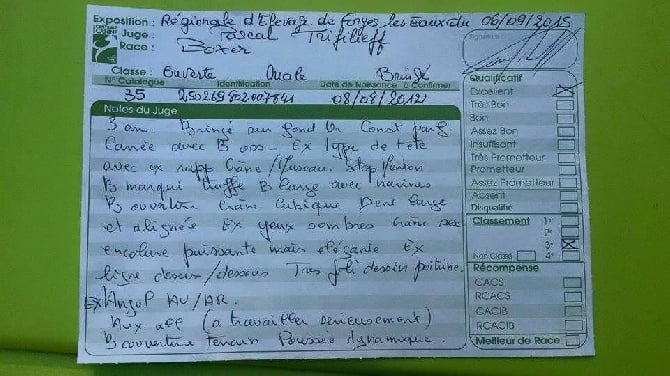 Exposition : Régionale d'Elevage de Forges les Eaux du 06/09/2015
Juge : Pascal Trifilieff
Race : Boxer
Classe : Ouverte Male Bringé
N° Catalogue Identification Date de Naissance à Confirmer
35 08/08/2012
Notes du Juge
3 ans Bringé au fond Un Const parf
Carrée avec B oss - Ex Type de tête
avec ex rapp Crâne / Museau. Stop Menton
B marqui truffe B large avec narines
B ouverture Crâne Cubique Dent large
et alignée Ex yeux sombres Crâne sec
encolure puissante mais élégante Ex
ligne dessus/dessous Très joli dessin poitrine
Ex Angul AV/AR.
Aux all (a travailler serieusement)
B couverture Terrain Poussée dynamique.
Qualificatif
Excellent
Très Bon
Bon
Assez Bon
Insuffisant
Très Prometteur
Prometteur
Assez Prometteur
Absent
Disqualifié
Classement 1er
2e
3e
Non Classé 4e
Récompense
CACS
RCACS
CACIB
RCACIB
Meilleur de Race